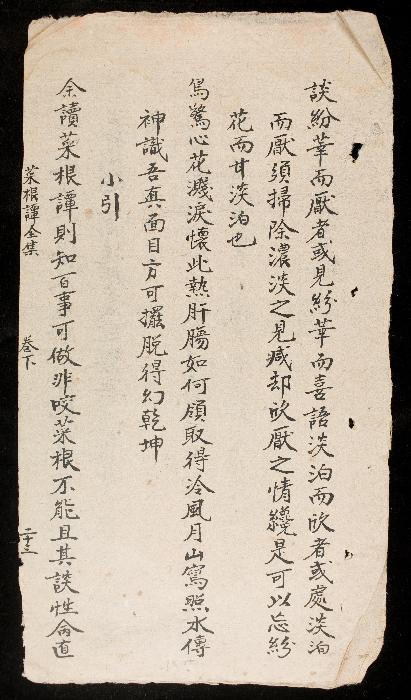 談紛華而厭者或見紛華而喜語淡泊而欣者或處淡泊
而厭須掃除濃淡之見滅却欣厭之情纔是可以忘紛
花而甘淡泊也
鳥驚心花濺淚懷此熱肝腸如何領取得冷風月山寫照水傳
神識吾真面目方可擺脫得幻乾坤
小引
余讀菜根譚則知百事可做非咬菜根不能且其談性命直
菜根譚全集 卷下 二十三